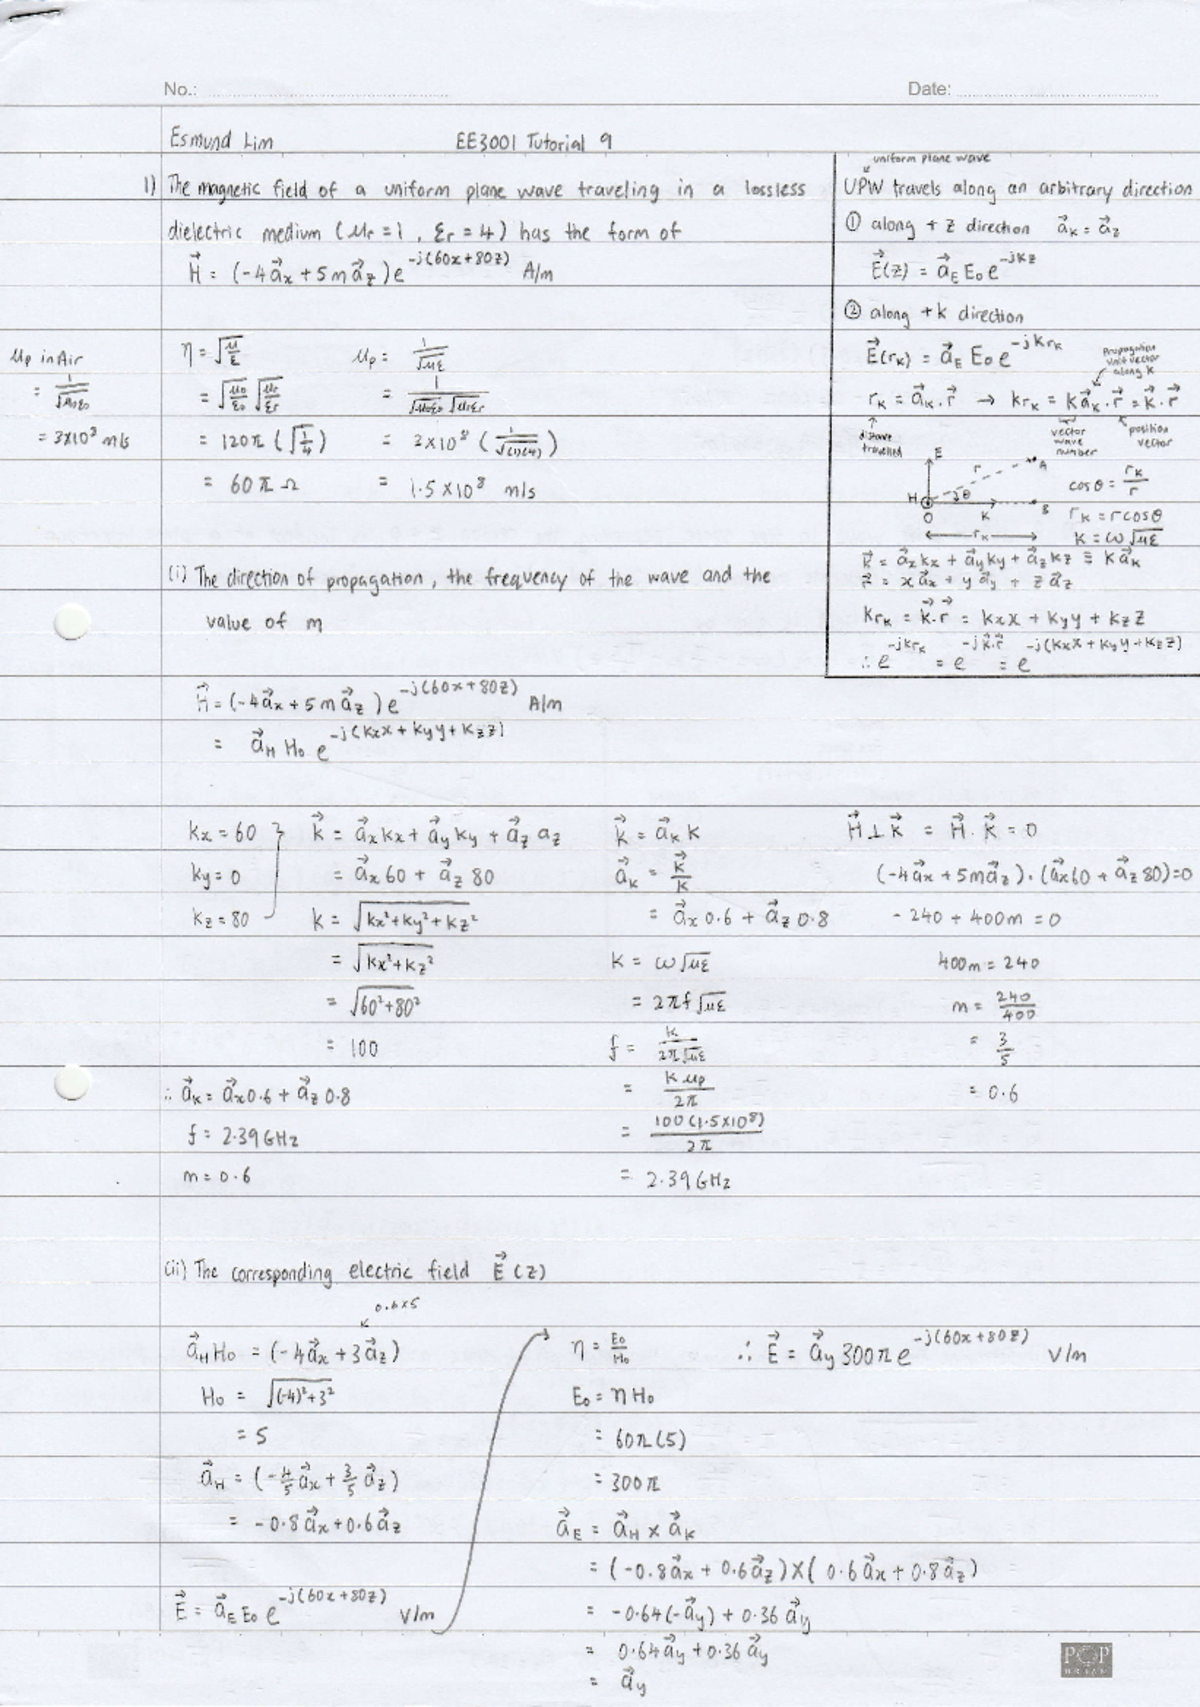 No.:
Date:
Esmund Lim
EE3001 Tutorial 9
1) The magnetic field of a uniform plane wave traveling in a lossless
dielectric medium (μr = 1, εr = 4) has the form of
H⃗ = (-4a⃗x + 5m a⃗z) e^-j(60x+80z) A/m
uniform plane wave
UPW travels along an arbitrary direction
① along + z direction a⃗k = a⃗z
E⃗(z) = a⃗E E0 e^-jkz
② along +k direction
E⃗(rk) = a⃗E E0 e^-jkrk
Propagation unit vector along k
rk = a⃗k . r⃗ → krk = k a⃗k . r⃗ = k⃗ . r⃗
distance travelled
vector wave number
position vector
E
r
A
H
θ
O
K
B
rk
cosθ = rk/r
rk = rcosθ
k = ω√με
k⃗ = a⃗x kx + a⃗y ky + a⃗z kz ≡ k a⃗k
r⃗ = x a⃗x + y a⃗y + z a⃗z
krk = k⃗ . r⃗ = kxx + kyy + kzz
∴ e^-jkrk = e^-jk⃗.r⃗ = e^-j(kxx + kyy + kzz)
μp in Air
= 1/√μ0ε0
= 3×10⁸ m/s
η = √(μ/ε)
= √(μ0/ε0) √(μr/εr)
= 120π (√(1/4))
= 60π Ω
μp = 1/√με
= 1/(√μ0ε0 √μrεr)
= 3×10⁸ (1/√(1)(4))
= 1.5×10⁸ m/s
(i) The direction of propagation, the frequency of the wave and the
value of m
H⃗ = (-4a⃗x + 5m a⃗z) e^-j(60x+80z) A/m
= a⃗H H0 e^-j(kxx + kyy + kzz)
kx = 60
ky = 0
kz = 80
k⃗ = a⃗x kx + a⃗y ky + a⃗z az
= a⃗x 60 + a⃗z 80
k = √(kx² + ky² + kz²)
= √(kx² + kz²)
= √(60² + 80²)
= 100
∴ a⃗k = a⃗x 0.6 + a⃗z 0.8
f = 2.39 GHz
m = 0.6
k⃗ = a⃗k k
a⃗k = k⃗/k
= a⃗x 0.6 + a⃗z 0.8
k = ω√με
= 2πf√με
f = k/(2π√με)
= k μp/2π
= 100(1.5×10⁸)/2π
= 2.39 GHz
H⃗ ⊥ k⃗ = H⃗ . k⃗ = 0
(-4a⃗x + 5m a⃗z) . (a⃗x 60 + a⃗z 80) = 0
-240 + 400m = 0
400m = 240
m = 240/400
= 3/5
= 0.6
(ii) The corresponding electric field E⃗ (z)
0.6×5
a⃗H H0 = (-4a⃗x + 3a⃗z)
H0 = √((-4)² + 3²)
= 5
a⃗H = (-4/5 a⃗x + 3/5 a⃗z)
= -0.8 a⃗x + 0.6 a⃗z
E⃗ = a⃗E E0 e^-j(60x+80z) V/m
η = E0/H0
E0 = η H0
= 60π (5)
= 300π
a⃗E = a⃗H × a⃗k
= (-0.8a⃗x + 0.6a⃗z) × (0.6a⃗x + 0.8a⃗z)
= -0.64(-a⃗y) + 0.36 a⃗y
= 0.64a⃗y + 0.36 a⃗y
= a⃗y
∴ E⃗ = a⃗y 300π e^-j(60x+80z) V/m
POP